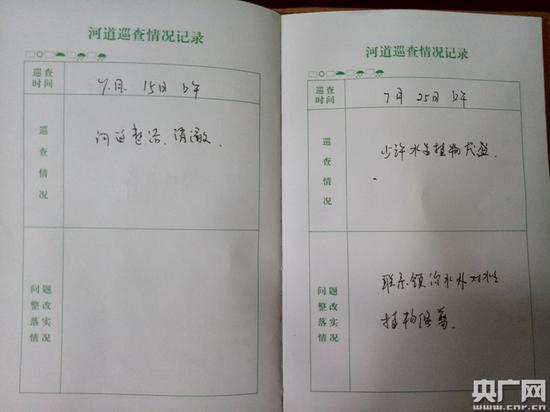 河道巡查情况记录
巡查时间
7月15日上午
巡查情况
河道整洁、清澈
问题整改落实情况
河道巡查情况记录
巡查时间
7月25日上午
巡查情况
少许水生植物
问题整改落实情况
联系 对水生
植物
央广网
www.cnr.cn